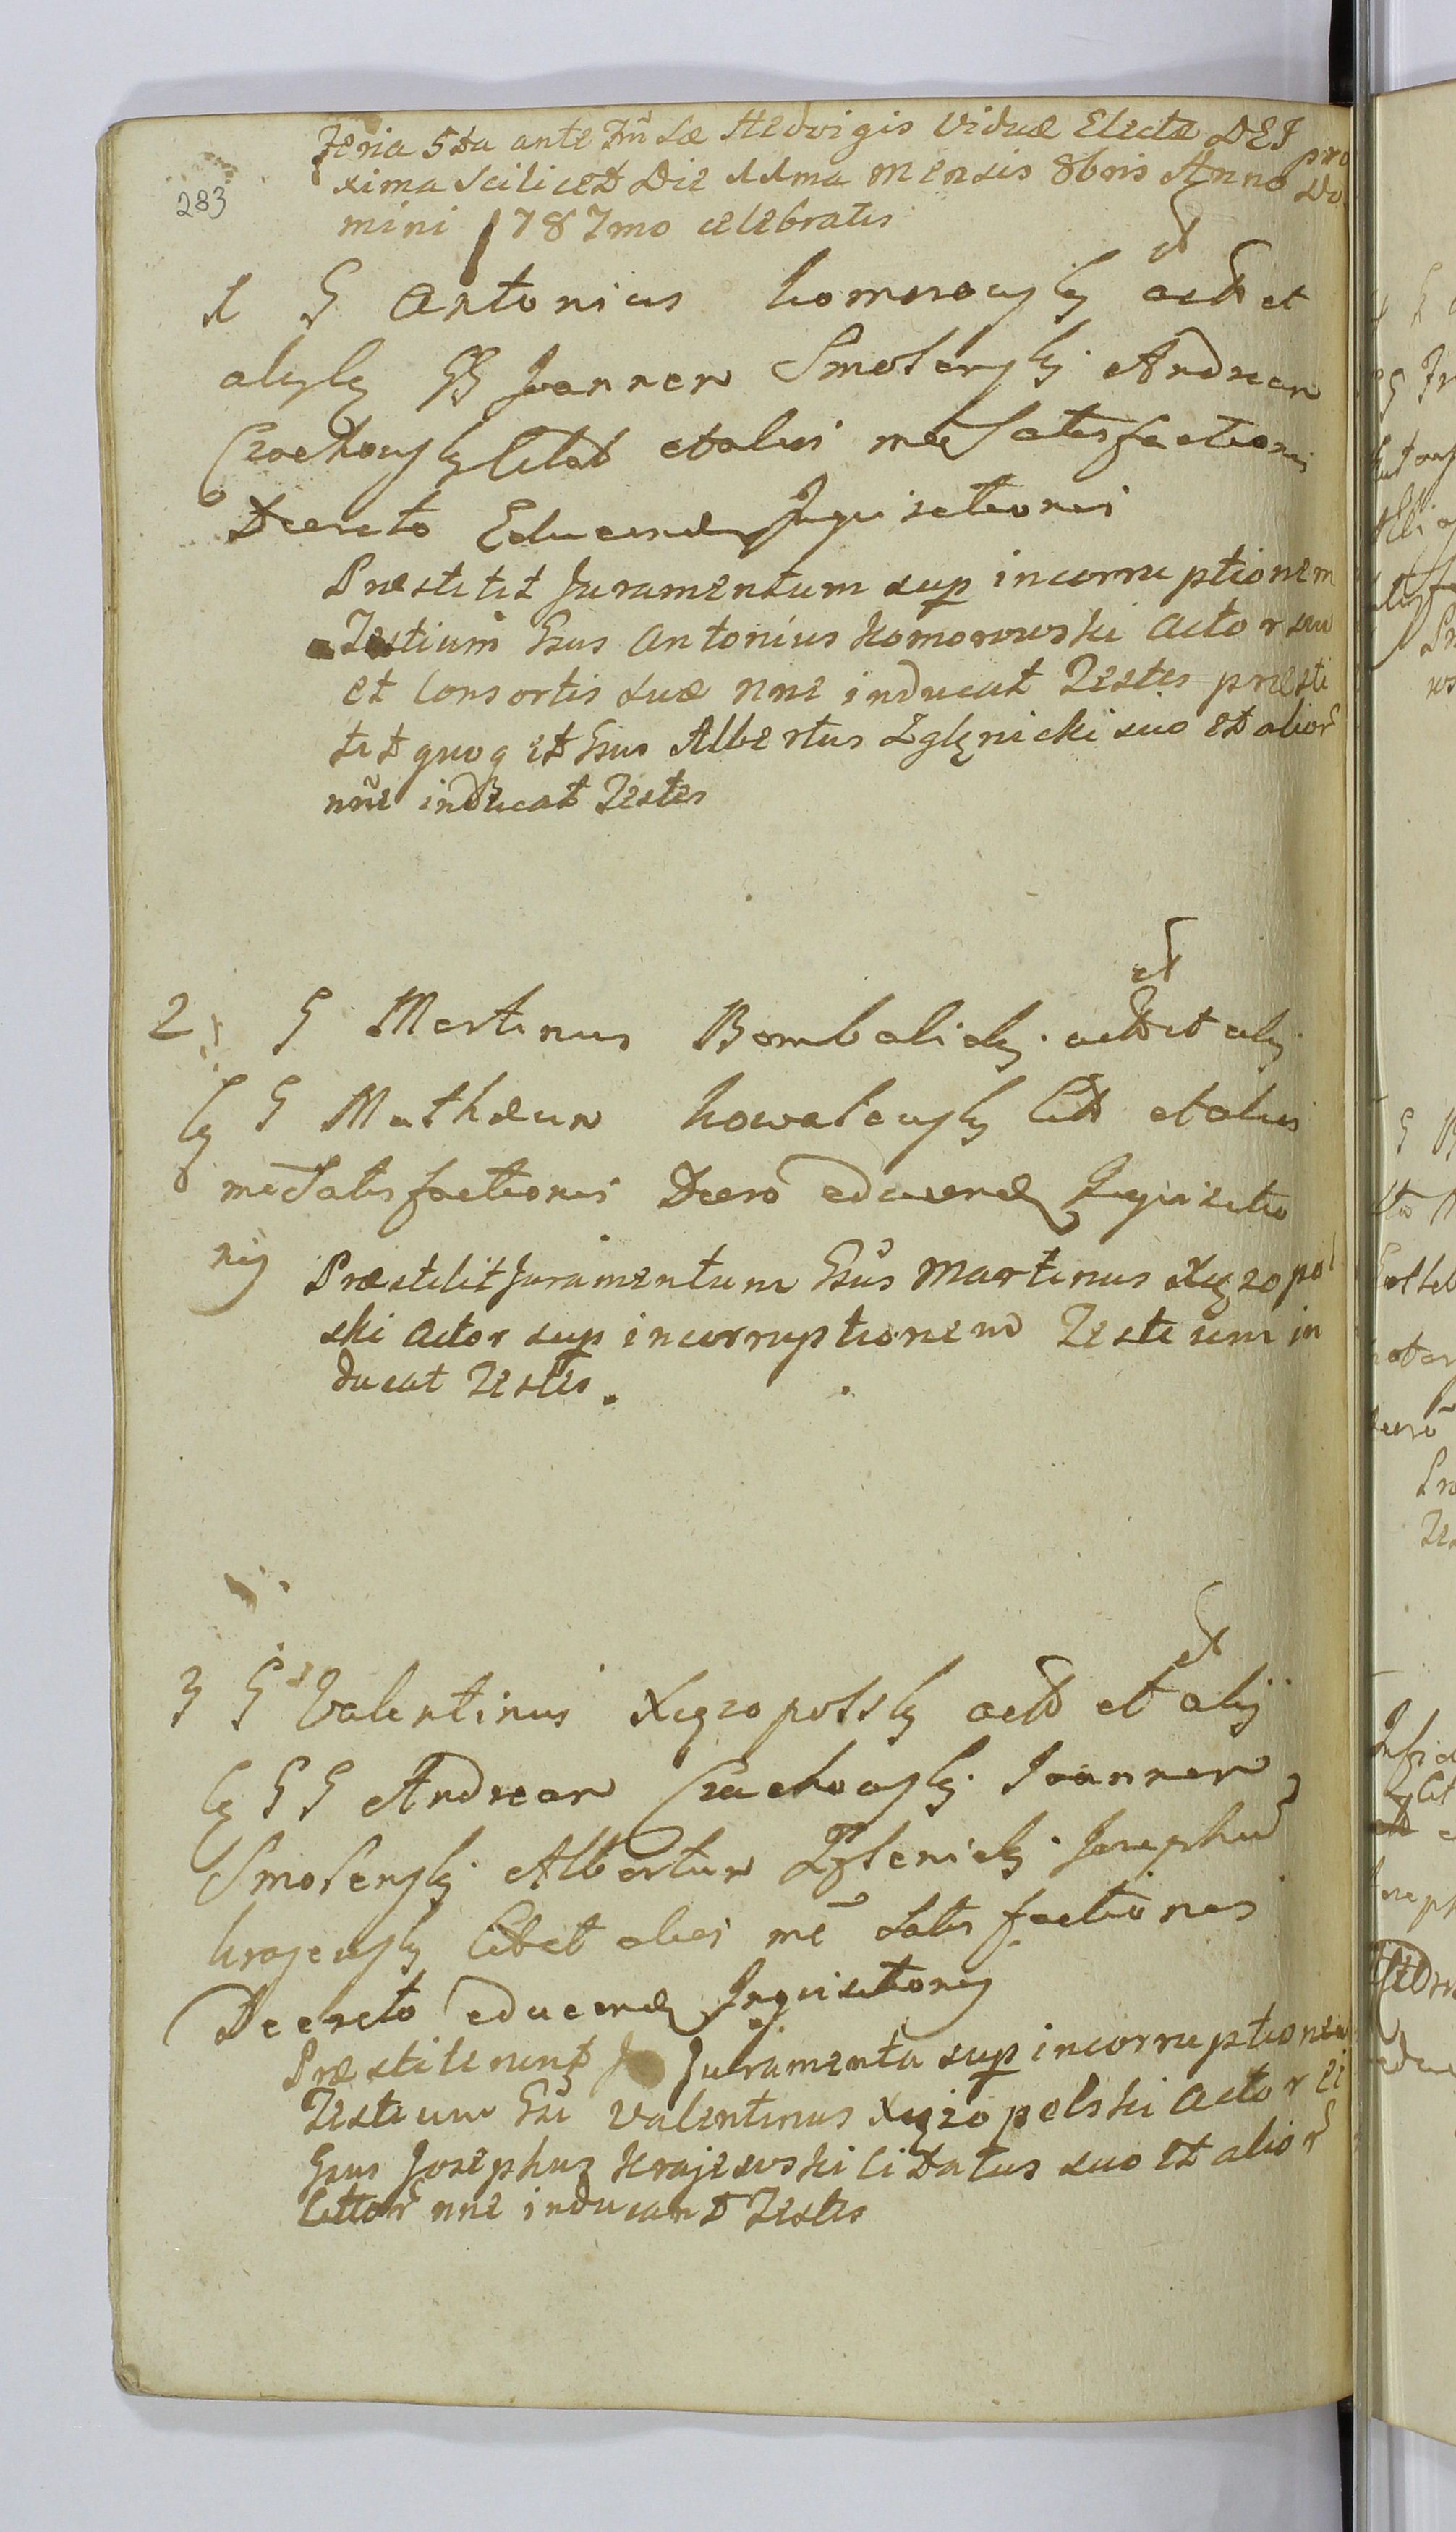 283
Feria 5ta ante Fñ Sæ Hedvigis Viduæ Electæ DEI pro
xima Scilicet Die 11ma Mensis 8bris Anno Do
mini 1787mo celebratis
1 G Antonius Komorowsky act et
G Joannem Smolensky Andream
Czochowsky Citat et alios me Satisfactionis
Decreto Educend Inquisitionis
Præstitit Juramentum sup incorruptionem
Testium Gsus Antonius Komorowski Actor suo
et Consortis suæ nne inducat Testes præsti
tit quoq et Gsus Albertus Zglęnicki suo et alior
nñe inducat Testes
2 G Martinus Bombalicky act et aly
G Mathæum Kowalewsky Cit et alios
me Satisfactionis Decro educend Inquisitio
nis
Præstitit Juramentum Gsus Martinus Xięzopol
ski Actor sup incorruptionem Testium in
ducat Testes.
3 G Valentinus Xięzopolsky act et alij
GG Andream Czochowsky Joannem
Smolensky Albertum Zglenicky Josephum
Krajewsky Cit et alios me Satisfactionis
Decreto educend Inquisitionis
Præstiterunt Juramenta sup incorruptionem
Testium Gsi Valentinus Xięzopolski Actor et
Gsus Josephus Krajewski Citatus suo et alior
Cittor nne inducant Testes